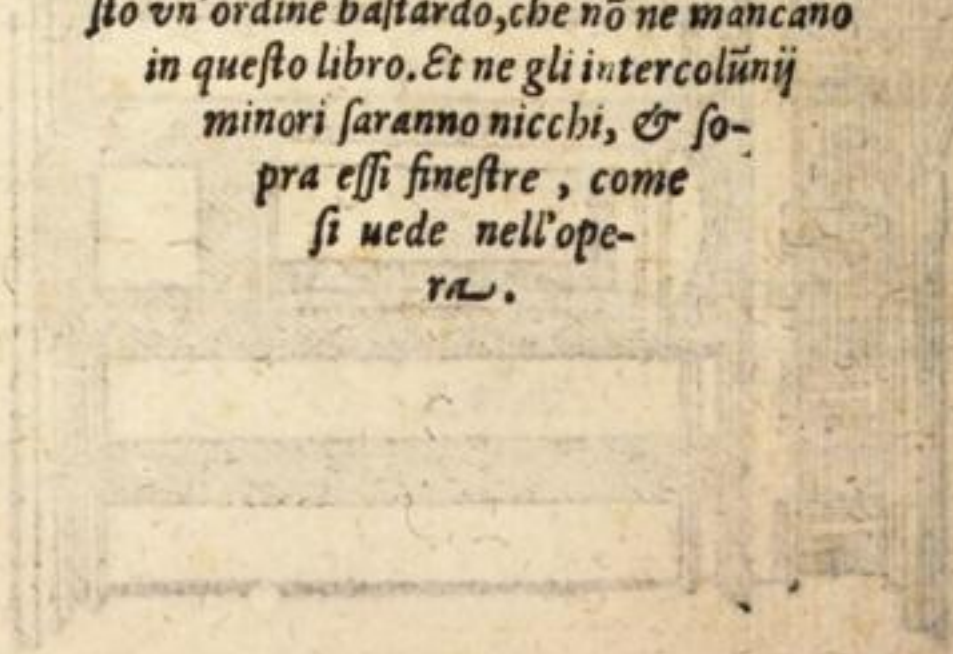 ſto vn' ordine baſtardo, che nō ne mancano
in queſto libro. Et ne gli intercolūnij
minori ſaranno nicchi, & ſo-
pra eſſi fineſtre , come
ſi uede nell'ope-
ra.